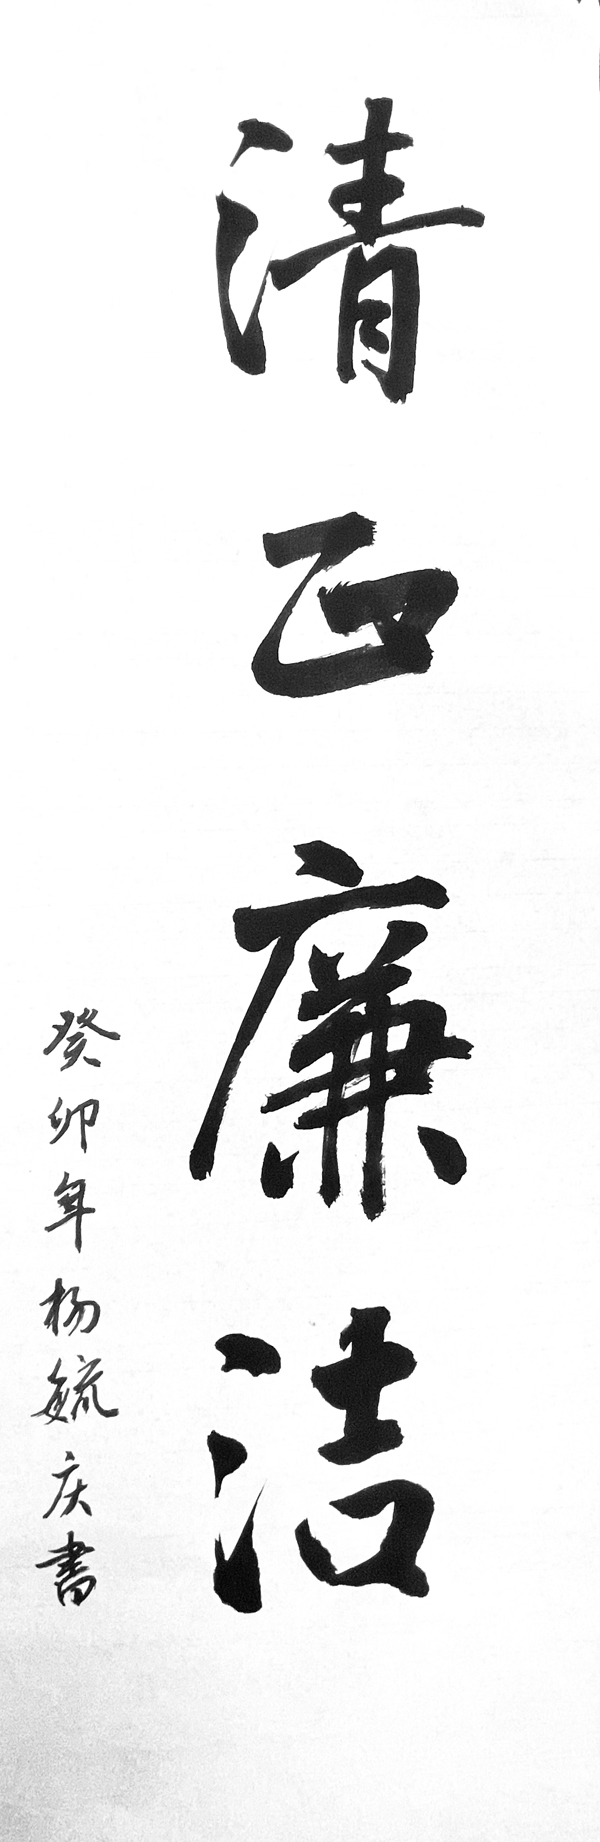 清正廉洁
癸卯年杨毓庆书